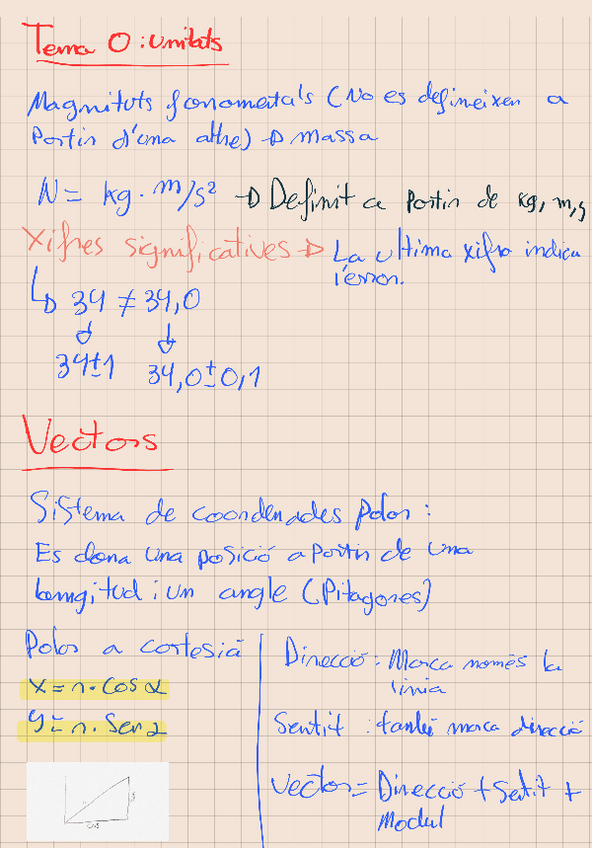 Tema 0: Unitats
Magnituts fonamentals (No es defineixen a
Partir d'una altre) → massa
N = kg · m/s² → Definit a partir de kg, m, s
Xifres significatives → La ultima xifra indica
l'error.
↳ 34 ≠ 34,0
↓ ↓
34±1 34,0±0,1
Vectors
Sistema de coordenades Polar:
Es dona una posició a partir de una
longitud i un angle (Pitagores)
Polar a cartesià
x = r · cos α
y = r · sen α
Direcció: Marca només la
linia
Sentit: també marca direcció
Vector = Direcció + Setit +
Modul
cos